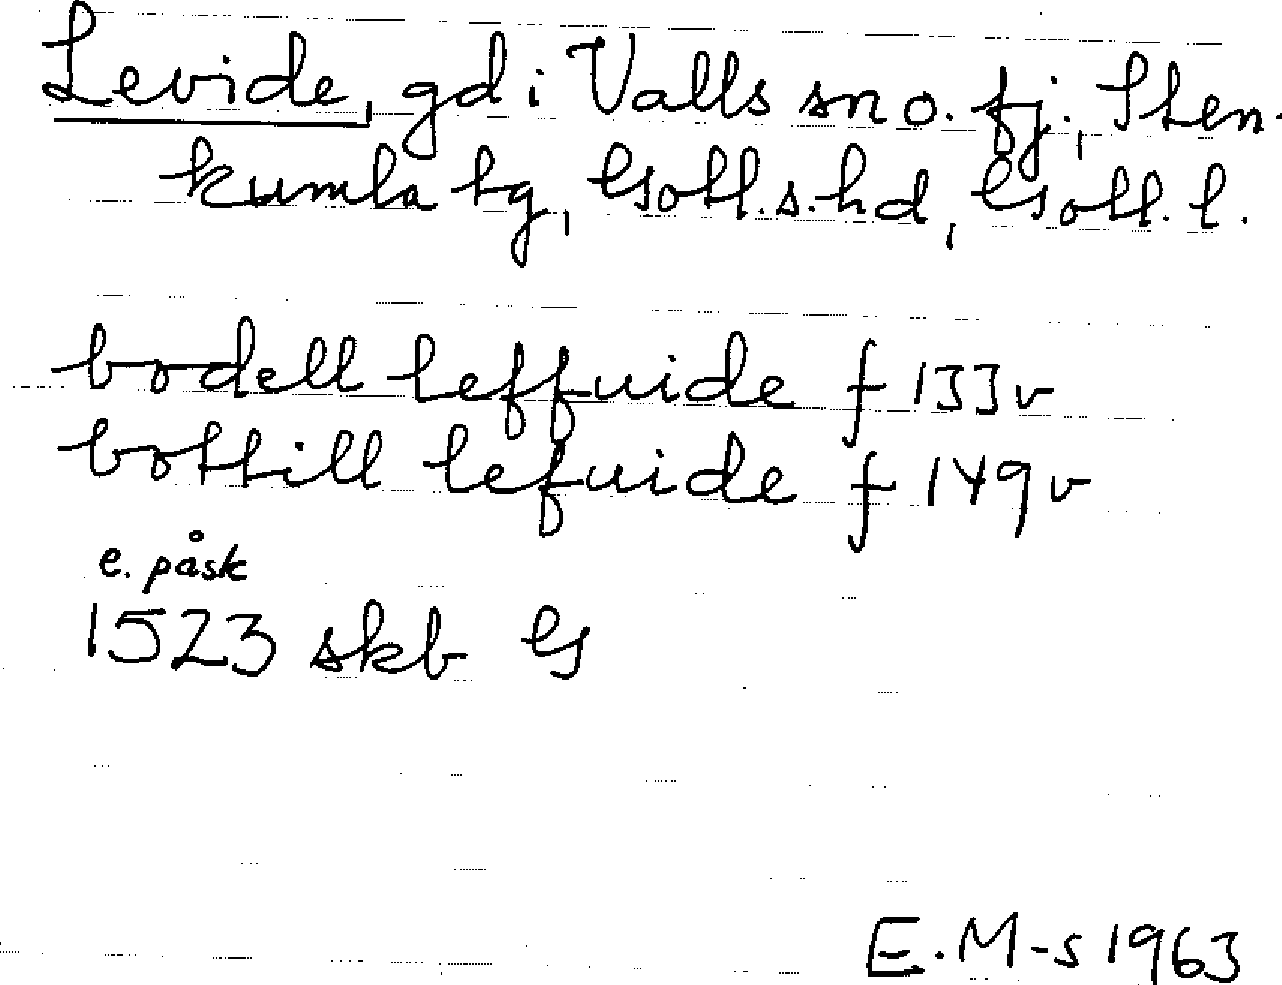 Levide, gd i Valls sn o. fj., Sten-
kumla tg, Gotl. s. hd, Gotl. l.
bodell leffuide f 133v
bottill lefuide f 149v
e. påsk
1523 skb G
E. M-s 1963